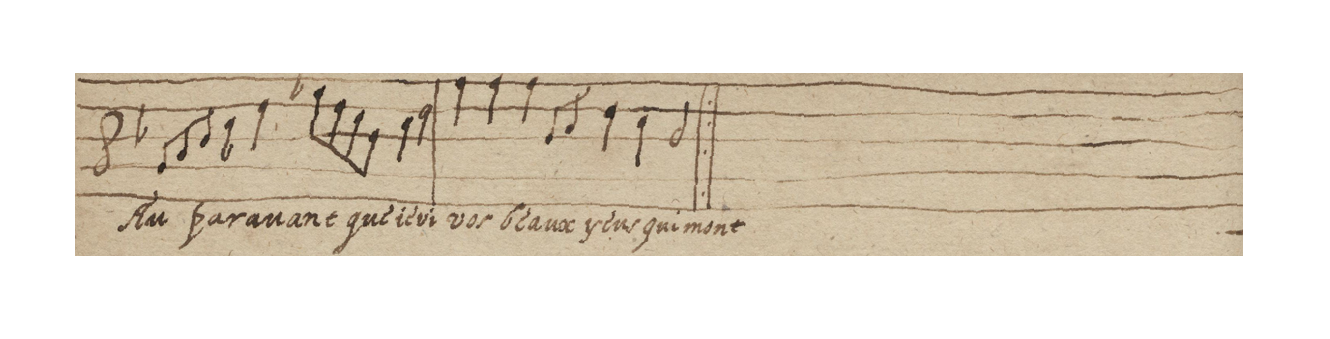 Au parauant que ie vi vos beaux yeus qui mont